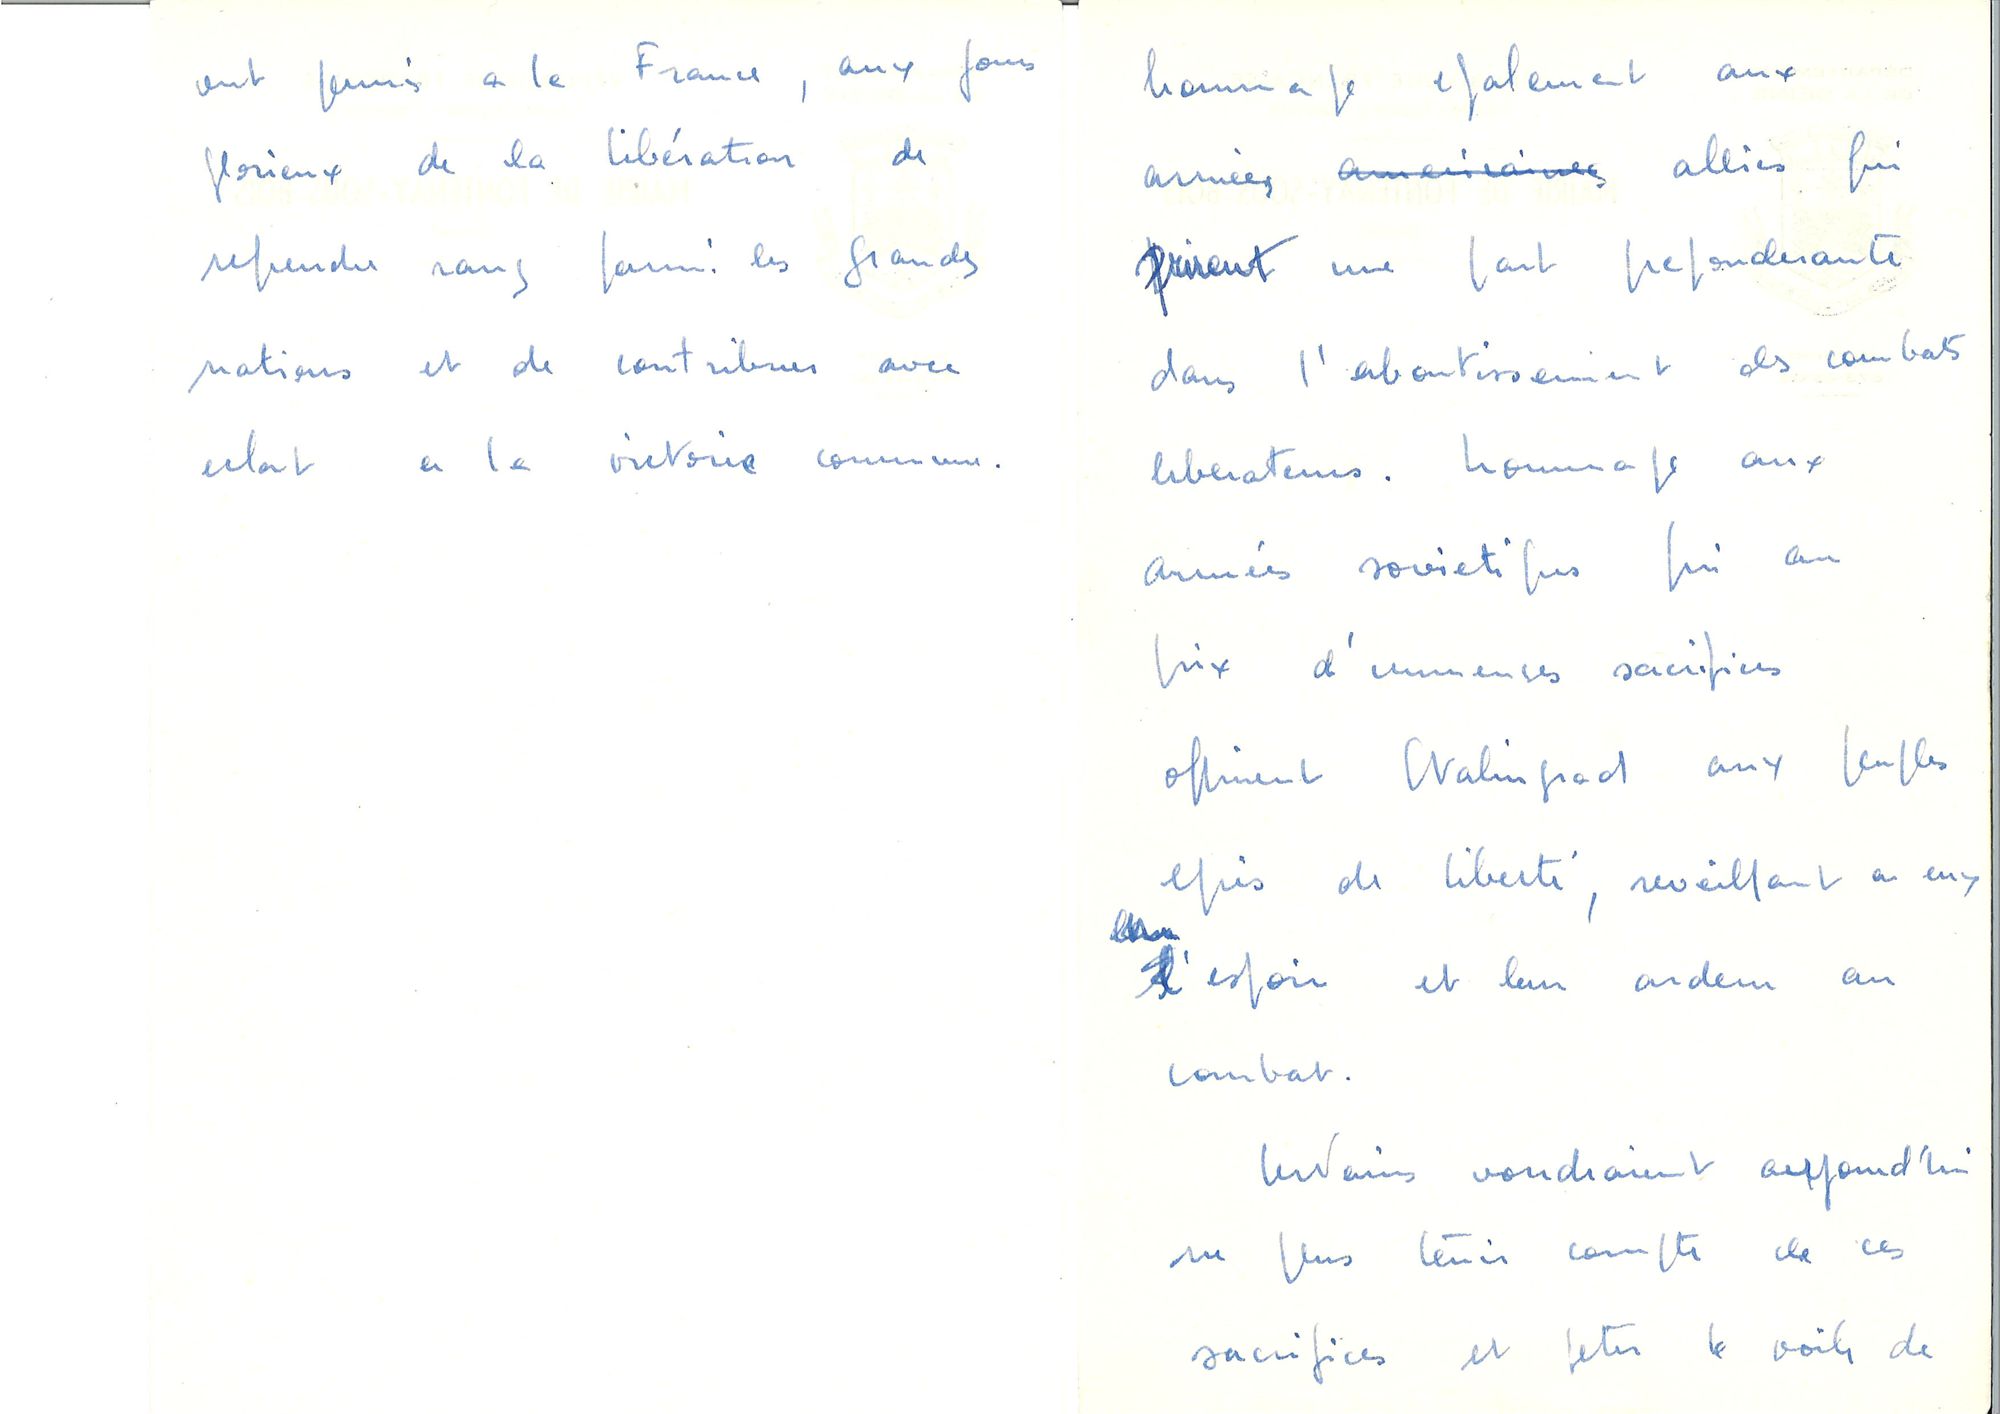 ont permis a la France, aux jours
glorieux de la libération de
reprendre rang parmi les grandes
nations et de contribuer avec
eclat a la victoire commune.
hommage egalement aux
armées americaines allies qui
prirent une part preponderante
dans l'aboutissement des combats
liberateurs. hommage aux
armées sovietiques qui au
prix d'immenses sacrifices
offrirent Stalingrad aux peuples
epris de liberté, reveillant en eux
l'espoir et leur ardeur au
combat.
Certains voudraient aujourd'hui
ne plus tenir compte de ces
sacrifices et jeter le voile de